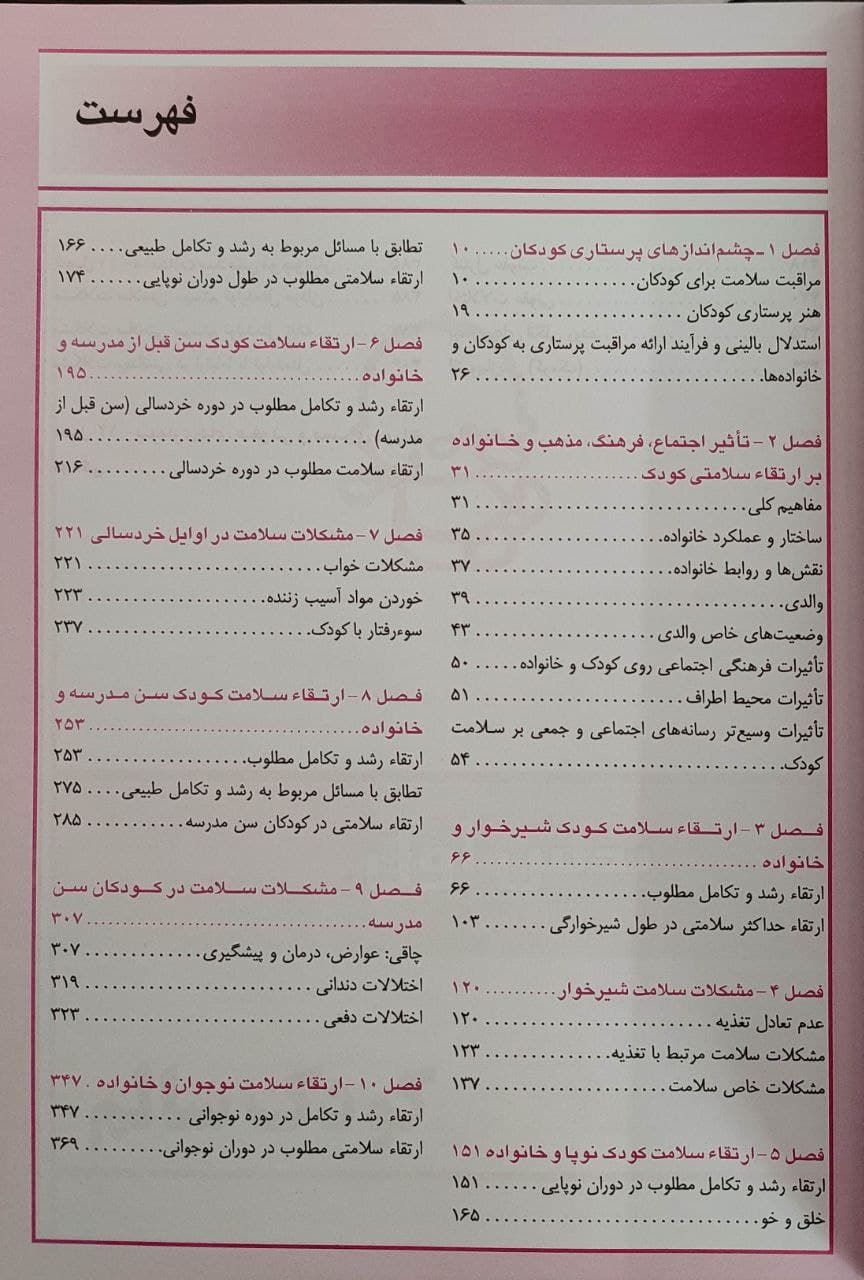 فهرست
فصل ۱ـ چشم‌اندازهای پرستاری کودکان ..... ۱۰
مراقبت سلامت برای کودکان.................. ۱۰
هنر پرستاری کودکان ...................... ۱۹
استدلال بالینی و فرآیند ارائه مراقبت پرستاری به کودکان و
خانواده‌ها................................ ۲۶
فصل ۲ - تأثیر اجتماع، فرهنگ، مذهب و خانواده
بر ارتقاء سلامتی کودک...................... ۳۱
مفاهیم کلی.............................. ۳۱
ساختار و عملکرد خانواده.................... ۳۵
نقش‌ها و روابط خانواده...................... ۳۷
والدی.................................. ۳۹
وضعیت‌های خاص والدی .................... ۴۳
تأثیرات فرهنگی اجتماعی روی کودک و خانواده..... ۵۰
تأثیرات محیط اطراف....................... ۵۱
تأثیرات وسیع‌تر رسانه‌های اجتماعی و جمعی بر سلامت
کودک.................................. ۵۴
فصل ۳ - ارتقاء سلامت کودک شیرخوار و
خانواده .................................. ۶۶
ارتقاء رشد و تکامل مطلوب.................... ۶۶
ارتقاء حداکثر سلامتی در طول شیرخوارگی ....... ۱۰۳
فصل ۴ - مشکلات سلامت شیرخوار.......... ۱۲۰
عدم تعادل تغذیه .......................... ۱۲۰
مشکلات سلامت مرتبط با تغذیه............... ۱۲۳
مشکلات خاص سلامت..................... ۱۳۷
فصل ۵ - ارتقاء سلامت کودک نوپا و خانواده ۱۵۱
ارتقاء رشد و تکامل مطلوب در دوران نوپایی ...... ۱۵۱
خلق و خو............................... ۱۶۵
تطابق با مسائل مربوط به رشد و تکامل طبیعی.... ۱۶۶
ارتقاء سلامتی مطلوب در طول دوران نوپایی...... ۱۷۴
فصل ۶ - ارتقاء سلامت کودک سن قبل از مدرسه و
خانواده.................................. ۱۹۵
ارتقاء رشد و تکامل مطلوب در دوره خردسالی (سن قبل از
مدرسه) ................................ ۱۹۵
ارتقاء سلامت مطلوب در دوره خردسالی ......... ۲۱۶
فصل ۷ - مشکلات سلامت در اوایل خردسالی ۲۲۱
مشکلات خواب........................... ۲۲۱
خوردن مواد آسیب زننده..................... ۲۲۳
سوءرفتار با کودک......................... ۲۳۷
فصل ۸ - ارتقاء سلامت کودک سن مدرسه و
خانواده.................................. ۲۵۳
ارتقاء رشد و تکامل مطلوب.................. ۲۵۳
تطابق با مسائل مربوط به رشد و تکامل طبیعی.... ۲۷۵
ارتقاء سلامتی در کودکان سن مدرسه ........... ۲۸۵
فصل ۹ - مشکلات سلامت در کودکان سن
مدرسه.................................. ۳۰۷
چاقی: عوارض، درمان و پیشگیری............. ۳۰۷
اختلالات دندانی ......................... ۳۱۹
اختلالات دفعی .......................... ۳۲۳
فصل ۱۰ - ارتقاء سلامت نوجوان و خانواده . ۳۴۷
ارتقاء رشد و تکامل در دوره نوجوانی ........... ۳۴۷
ارتقاء سلامتی مطلوب در دوران نوجوانی.......... ۳۶۹